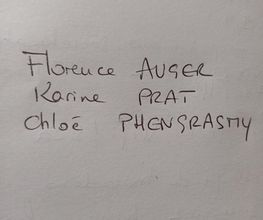 Florence AUGER
Karine PRAT
Chloé PHENGRASMY